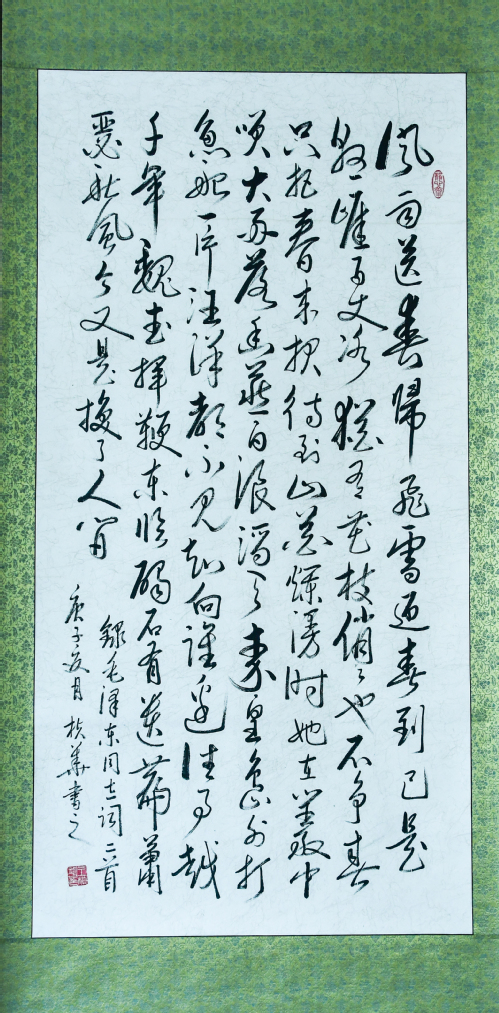 风雨送春归飞雪迎春到已是
悬崖百丈冰犹有花枝俏俏也不争春
只把春来报待到山花烂漫时她在丛中
笑大雨落幽燕白浪滔天秦皇岛外打
鱼船一片汪洋都不见知向谁边往事越
千年魏武挥鞭东临碣石有遗篇萧
瑟秋风今又是换了人间
録毛泽东同志词二首
庚子夏月 華書之